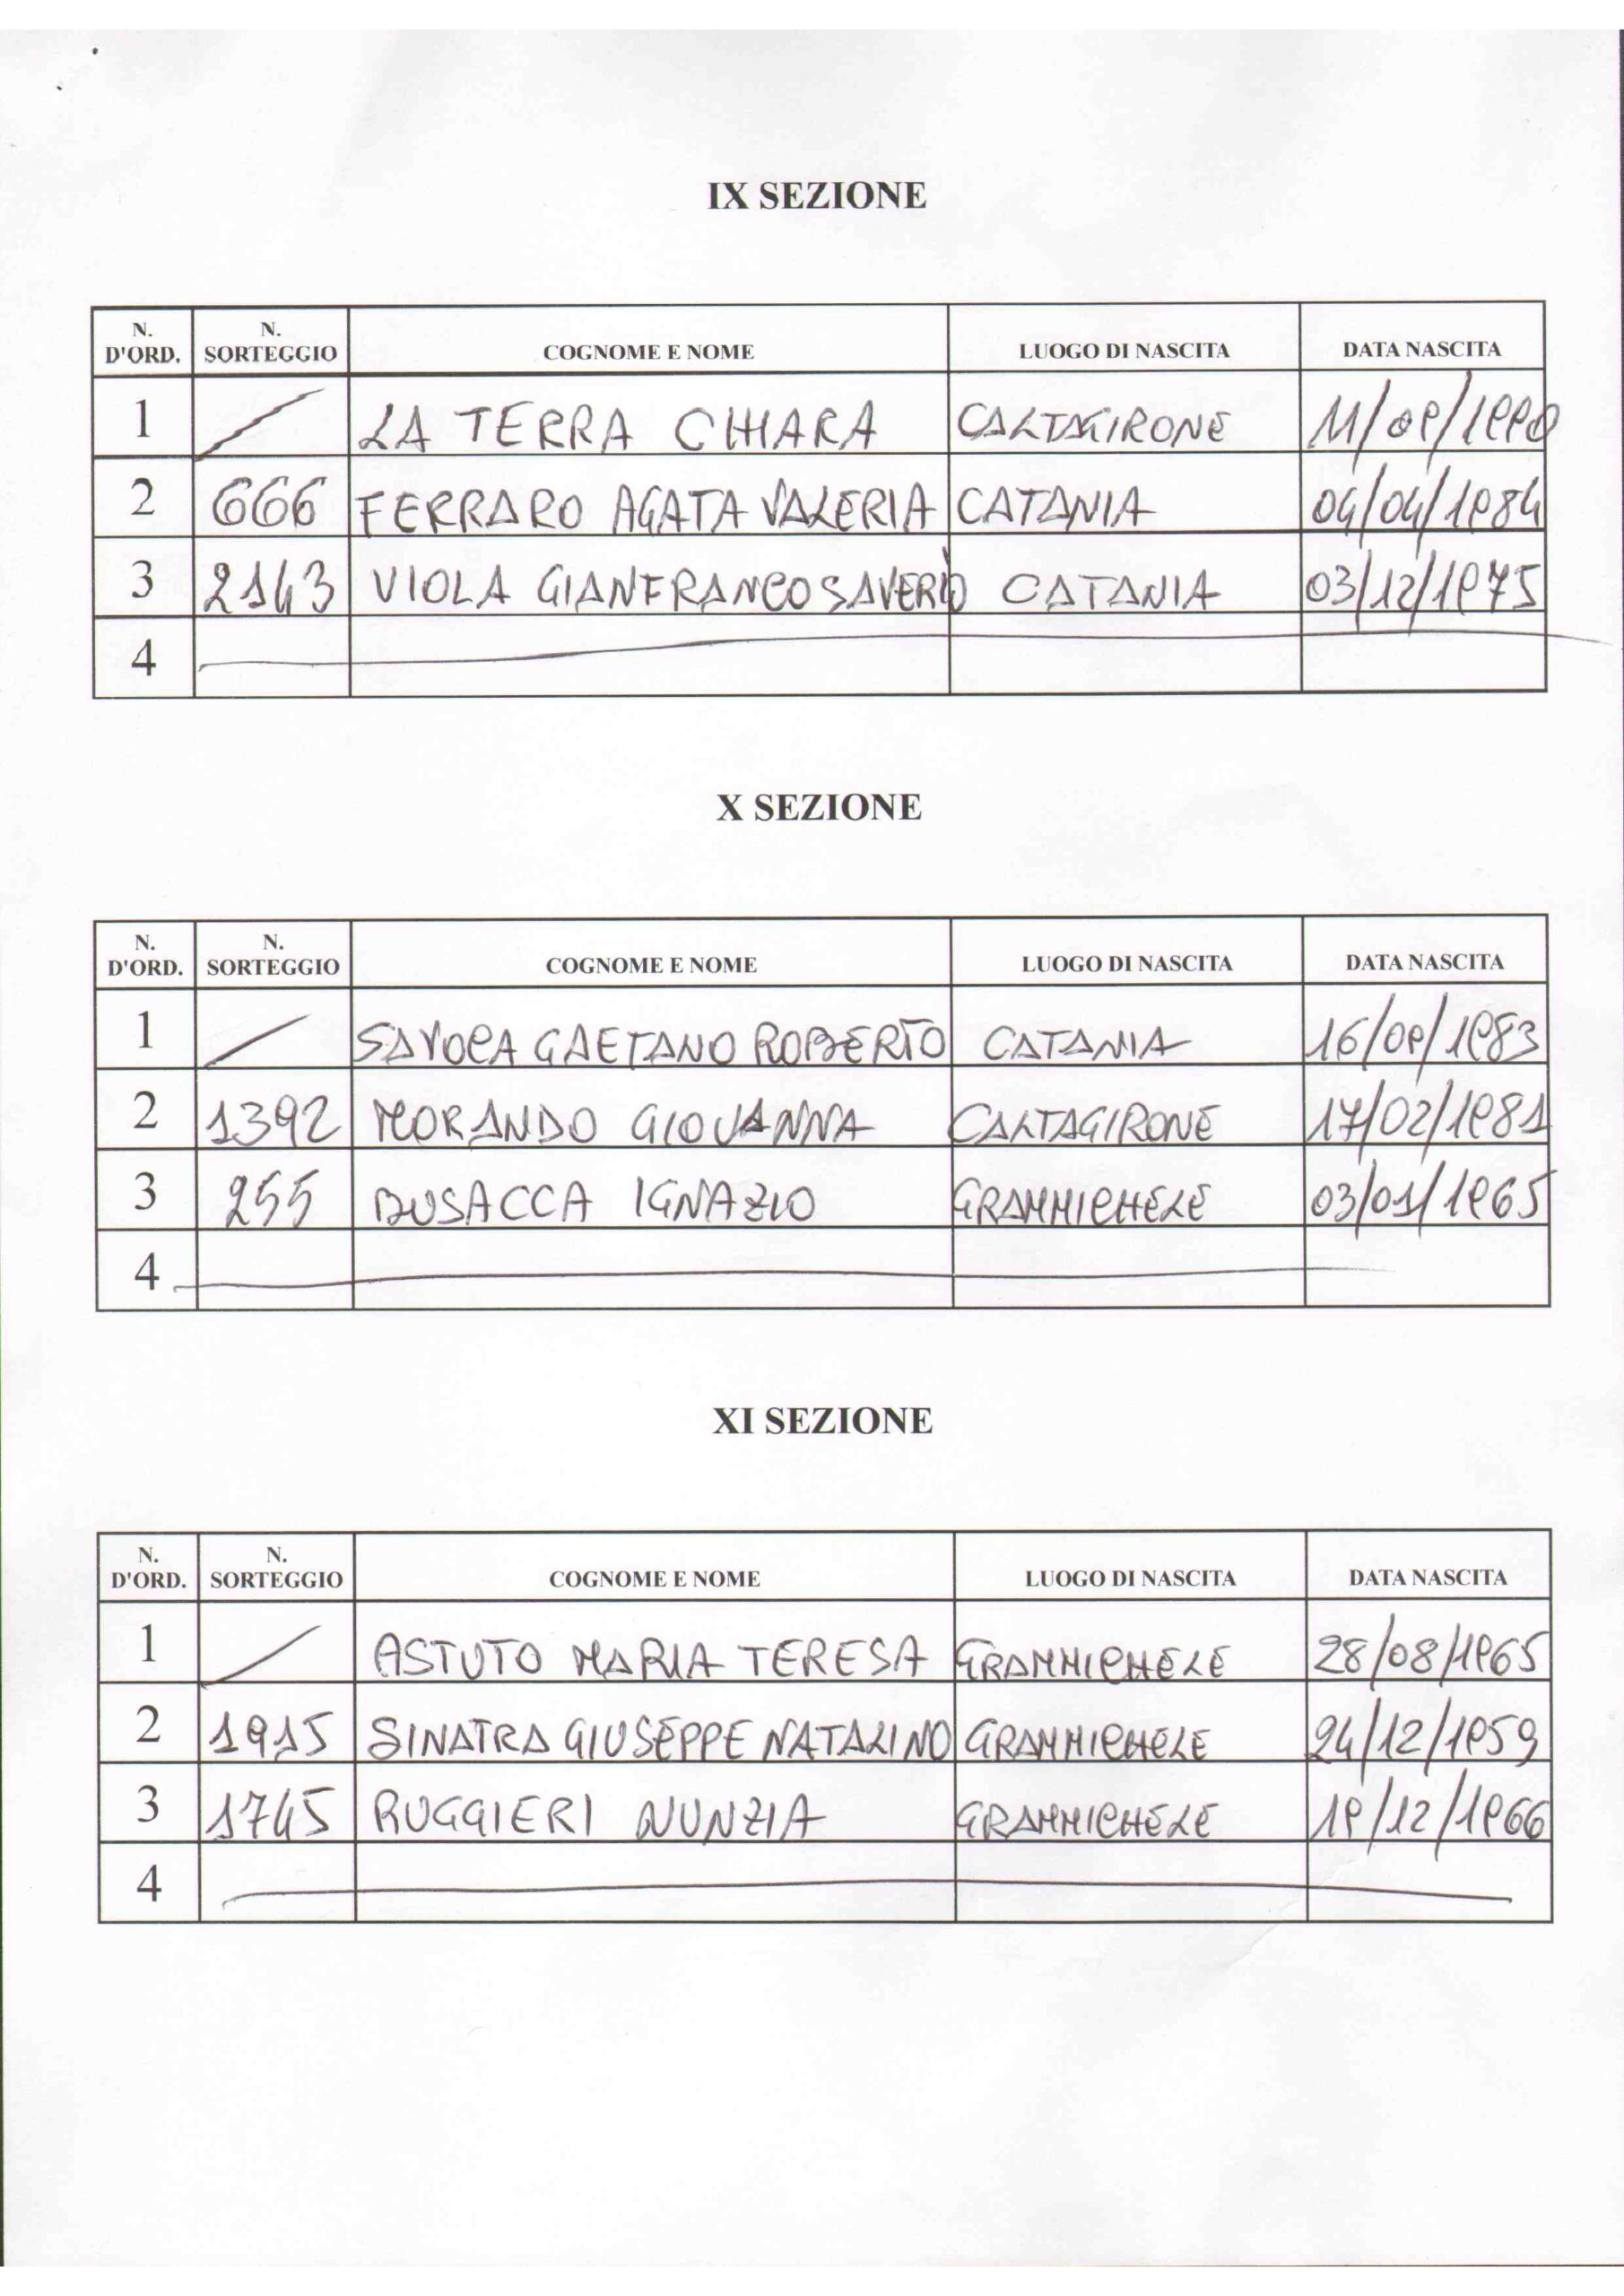 IX SEZIONE
N. D'ORD. N. SORTEGGIO COGNOME E NOME LUOGO DI NASCITA DATA NASCITA
1 / LA TERRA CHIARA CALTAGIRONE 11/09/1990
2 666 FERRARO AGATA VALERIA CATANIA 04/04/1984
3 2143 VIOLA GIANFRANCO SAVERIO CATANIA 03/12/1975
4
X SEZIONE
N. D'ORD. N. SORTEGGIO COGNOME E NOME LUOGO DI NASCITA DATA NASCITA
1 / GAETANO ROBERTO CATANIA 16/09/1983
2 1392 MORANDO GIOVANNA CALTAGIRONE 17/02/1981
3 255 BUSACCA IGNAZIO GRAMMICHELE 03/01/1965
4
XI SEZIONE
N. D'ORD. N. SORTEGGIO COGNOME E NOME LUOGO DI NASCITA DATA NASCITA
1 / ASTUTO MARIA TERESA GRAMMICHELE 28/08/1965
2 1915 SINATRA GIUSEPPE NATALINO GRAMMICHELE 24/12/1959
3 1745 RUGGIERI NUNZIA GRAMMICHELE 19/12/1966
4